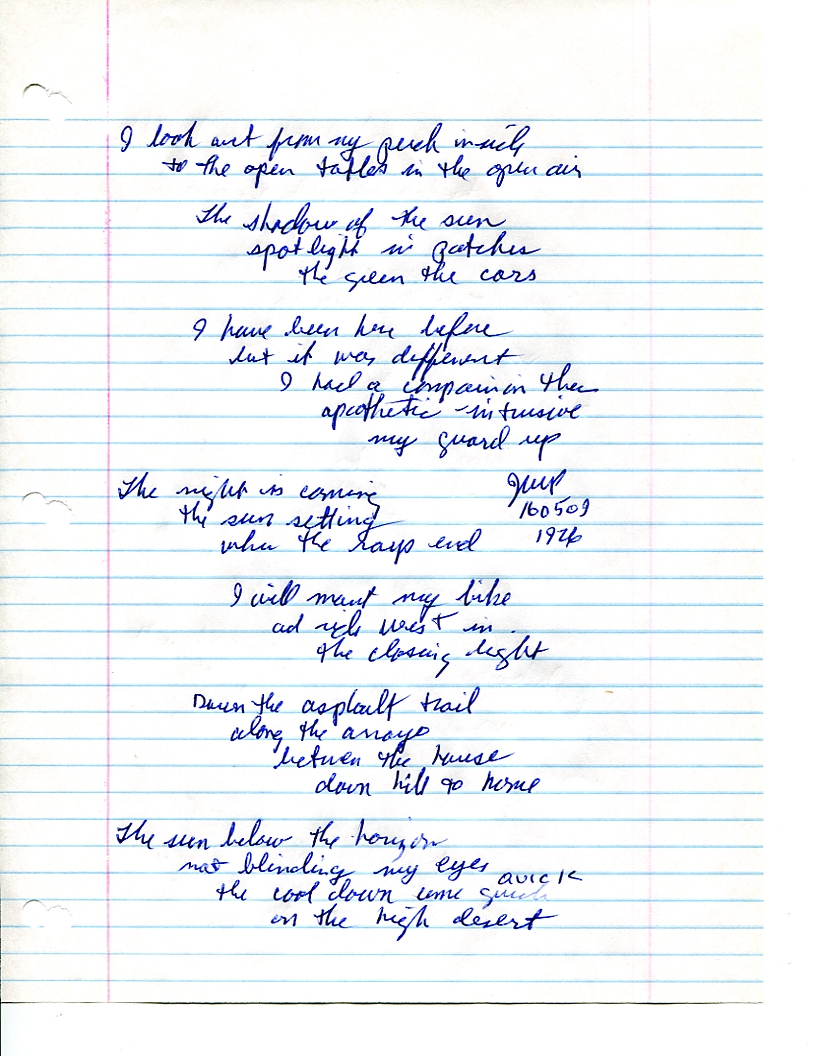 I look out from my perch inside
to the open tables in the open air
The shadow of the sun
spot light in patches
the green the cars
I have been here before
but it was different
I had a companion then
apathetic - intrusive
my guard up
The night is coming
the sun setting
when the rays end
JWP
160509
1926
I will mount my bike
ad ride west in
the closing light
Down the asphalt trail
along the arroyo
between the house
down hill to home
The sun below the horizon
not blinding my eyes
the cool down come quick QUICK
on the high desert